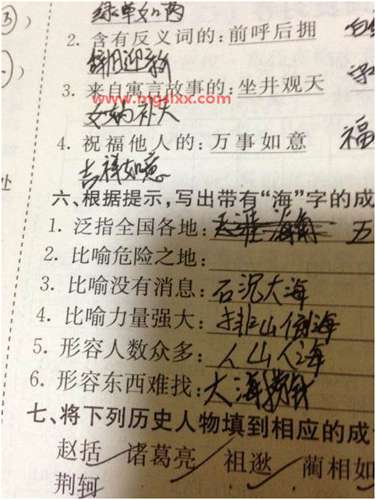 绿草如茵
2. 含有反义词的: 前呼后拥
辞旧迎新
3. 来自寓言故事的: 坐井观天
www.mgslxx.com
女娲补天
4. 祝福他人的: 万事如意 福
吉祥如意
六、根据提示,写出带有“海”字的成
1. 泛指全国各地: 天涯海角 五
2. 比喻危险之地:
3. 比喻没有消息: 石沉大海
4. 比喻力量强大: 排山倒海
5. 形容人数众多: 人山人海
6. 形容东西难找: 大海捞针
七、将下列历史人物填到相应的成
赵括 诸葛亮 祖逖 蔺相如
荆轲